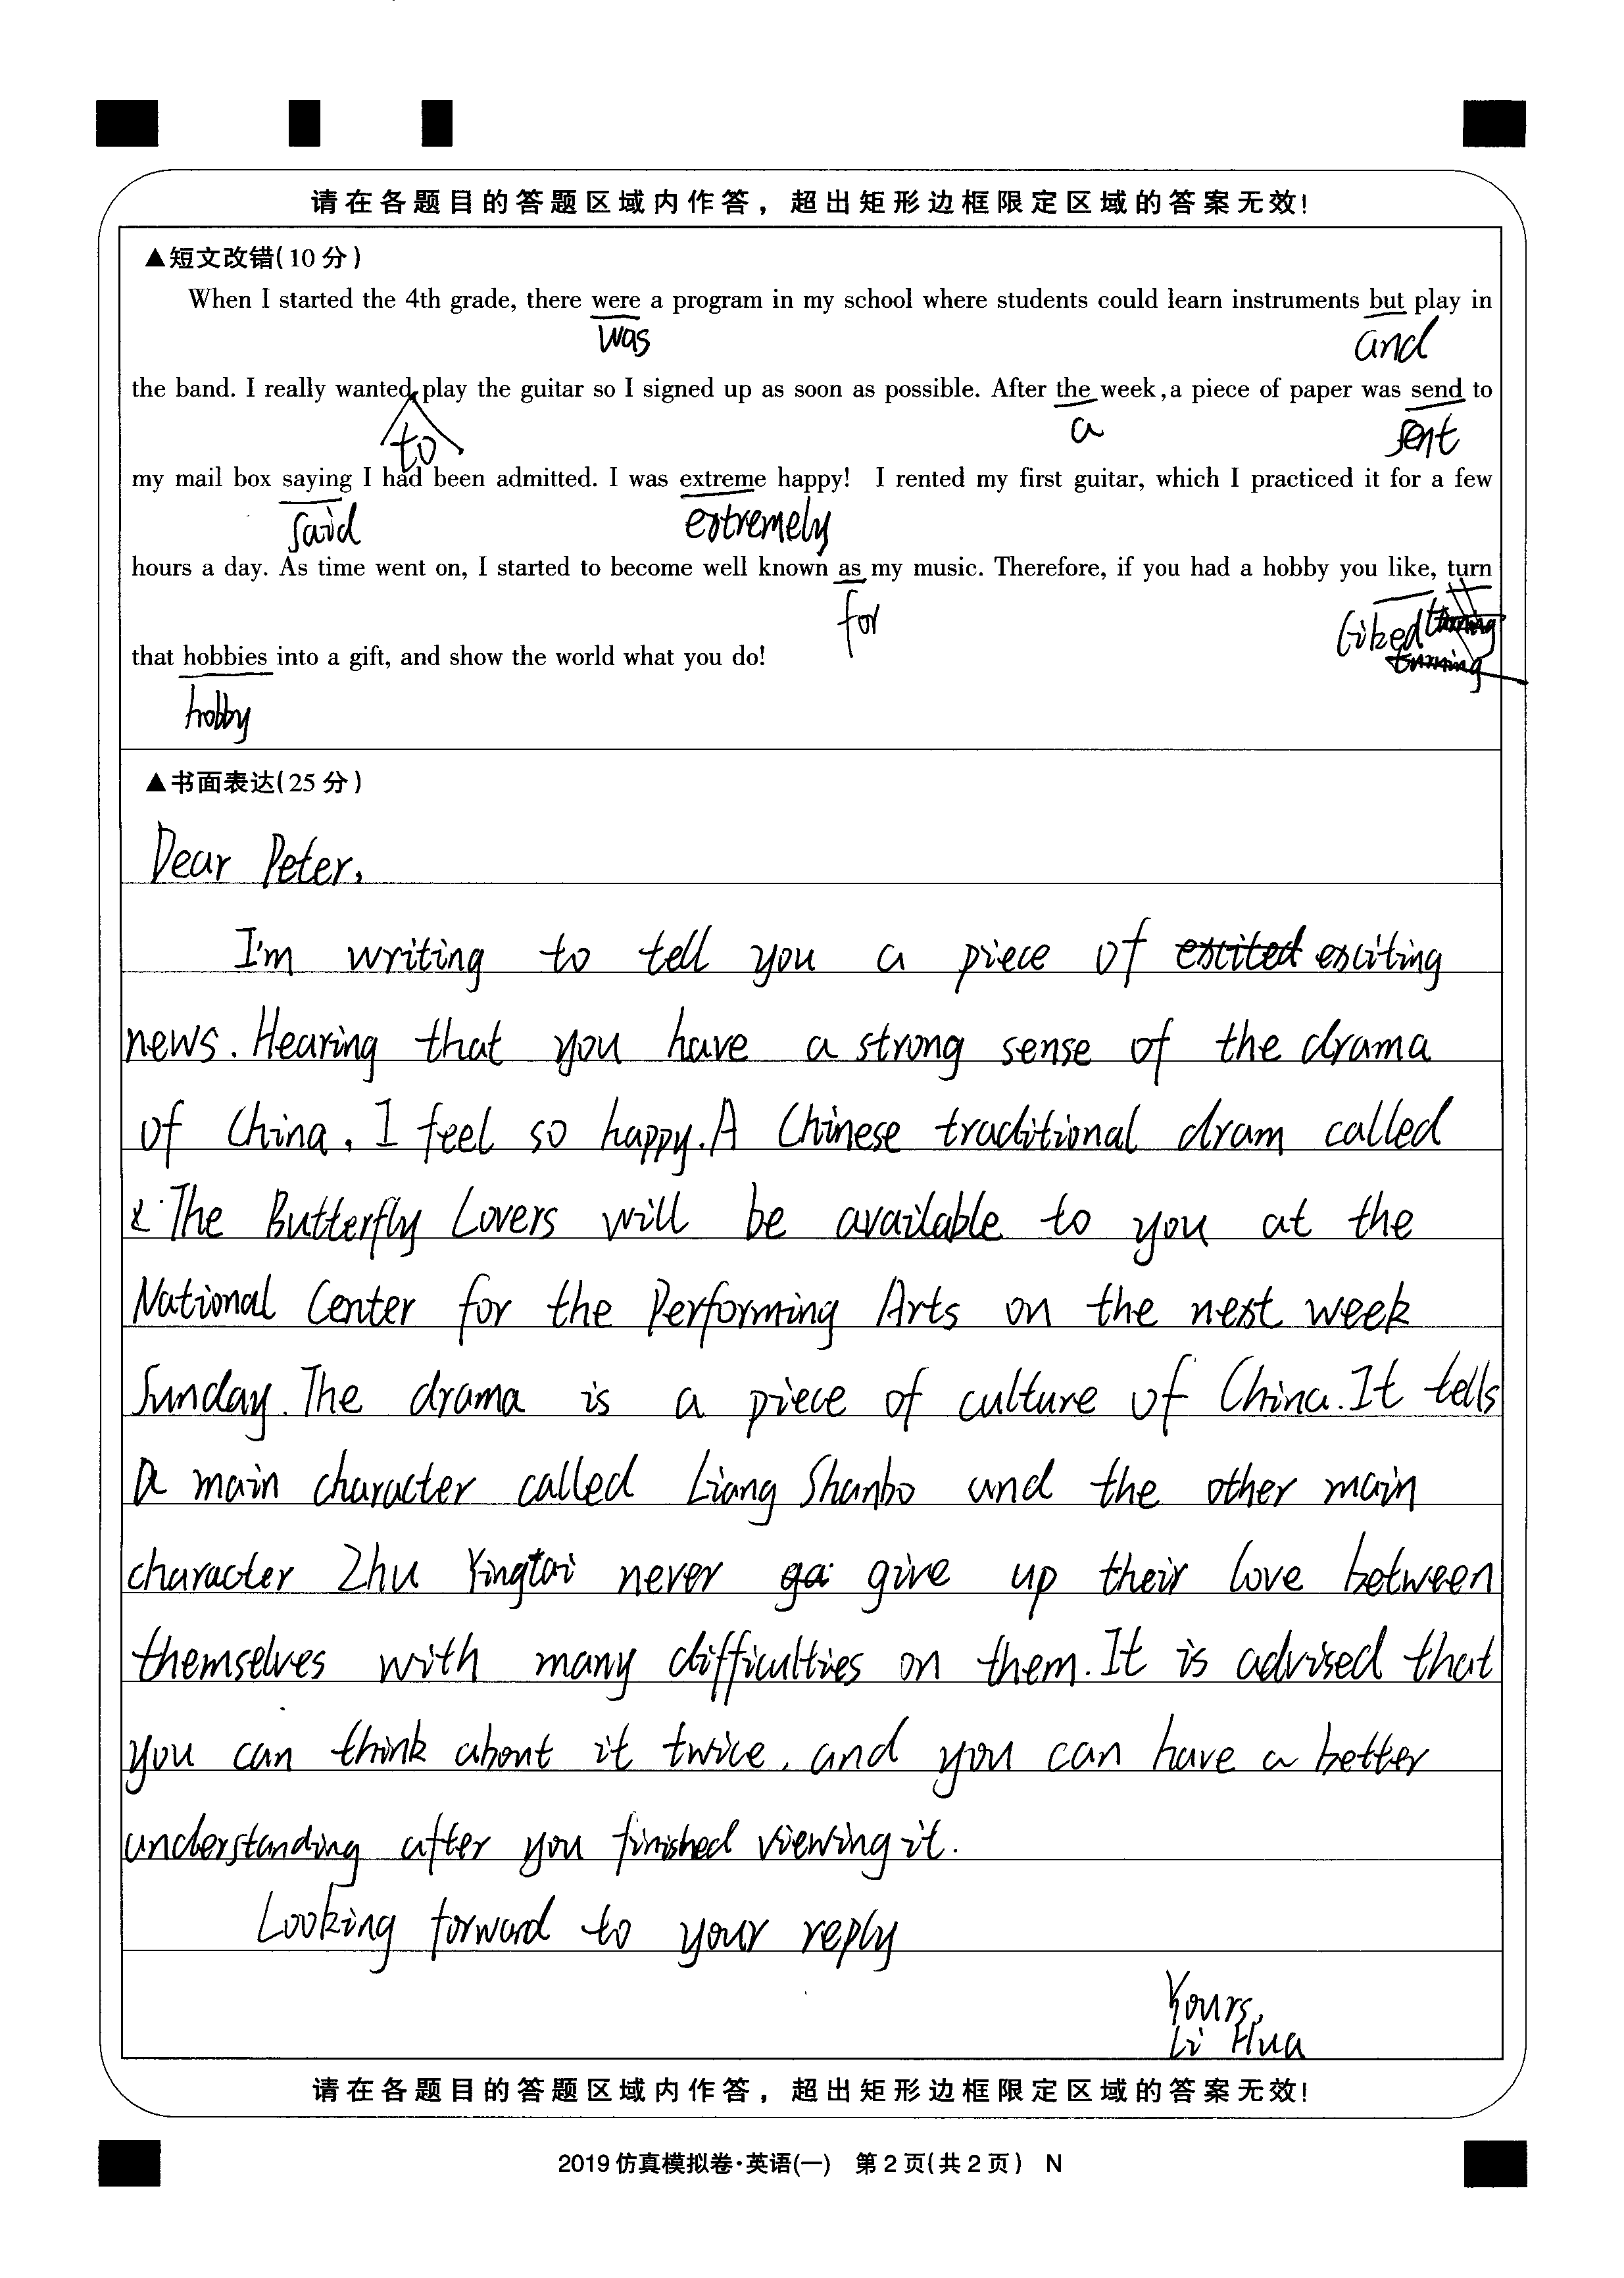 请在各题目的答题区域内作答，超出矩形边框限定区域的答案无效!
▲短文改错(10分)
When I started the 4th grade, there were a program in my school where students could learn instruments but play in
was and
the band. I really wanted play the guitar so I signed up as soon as possible. After the week,a piece of paper was send to
to a sent
my mail box saying I had been admitted. I was extreme happy! I rented my first guitar, which I practiced it for a few
said extremely
hours a day. As time went on, I started to become well known as my music. Therefore, if you had a hobby you like, turn
for liked turning
turning
that hobbies into a gift, and show the world what you do!
hobby
▲书面表达(25分)
Dear Peter,
I'm writing to tell you a piece of excited exciting
news. Hearing that you have a strong sense of the drama
of China, I feel so happy. A Chinese traditional dram called
The Butterfly Lovers will be available to you at the
National Center for the Performing Arts on the next week
Sunday. The drama is a piece of culture of China. It tells
a main character called Liang Shanbo and the other main
character Zhu Yingtai never ga give up their love between
themselves with many difficulties on them. It is advised that
you can think about it twice, and you can have a better
understanding after you finished viewing it.
Looking forward to your reply
Yours,
Li Hua
请在各题目的答题区域内作答，超出矩形边框限定区域的答案无效!
2019仿真模拟卷·英语(一) 第2页(共2页) N